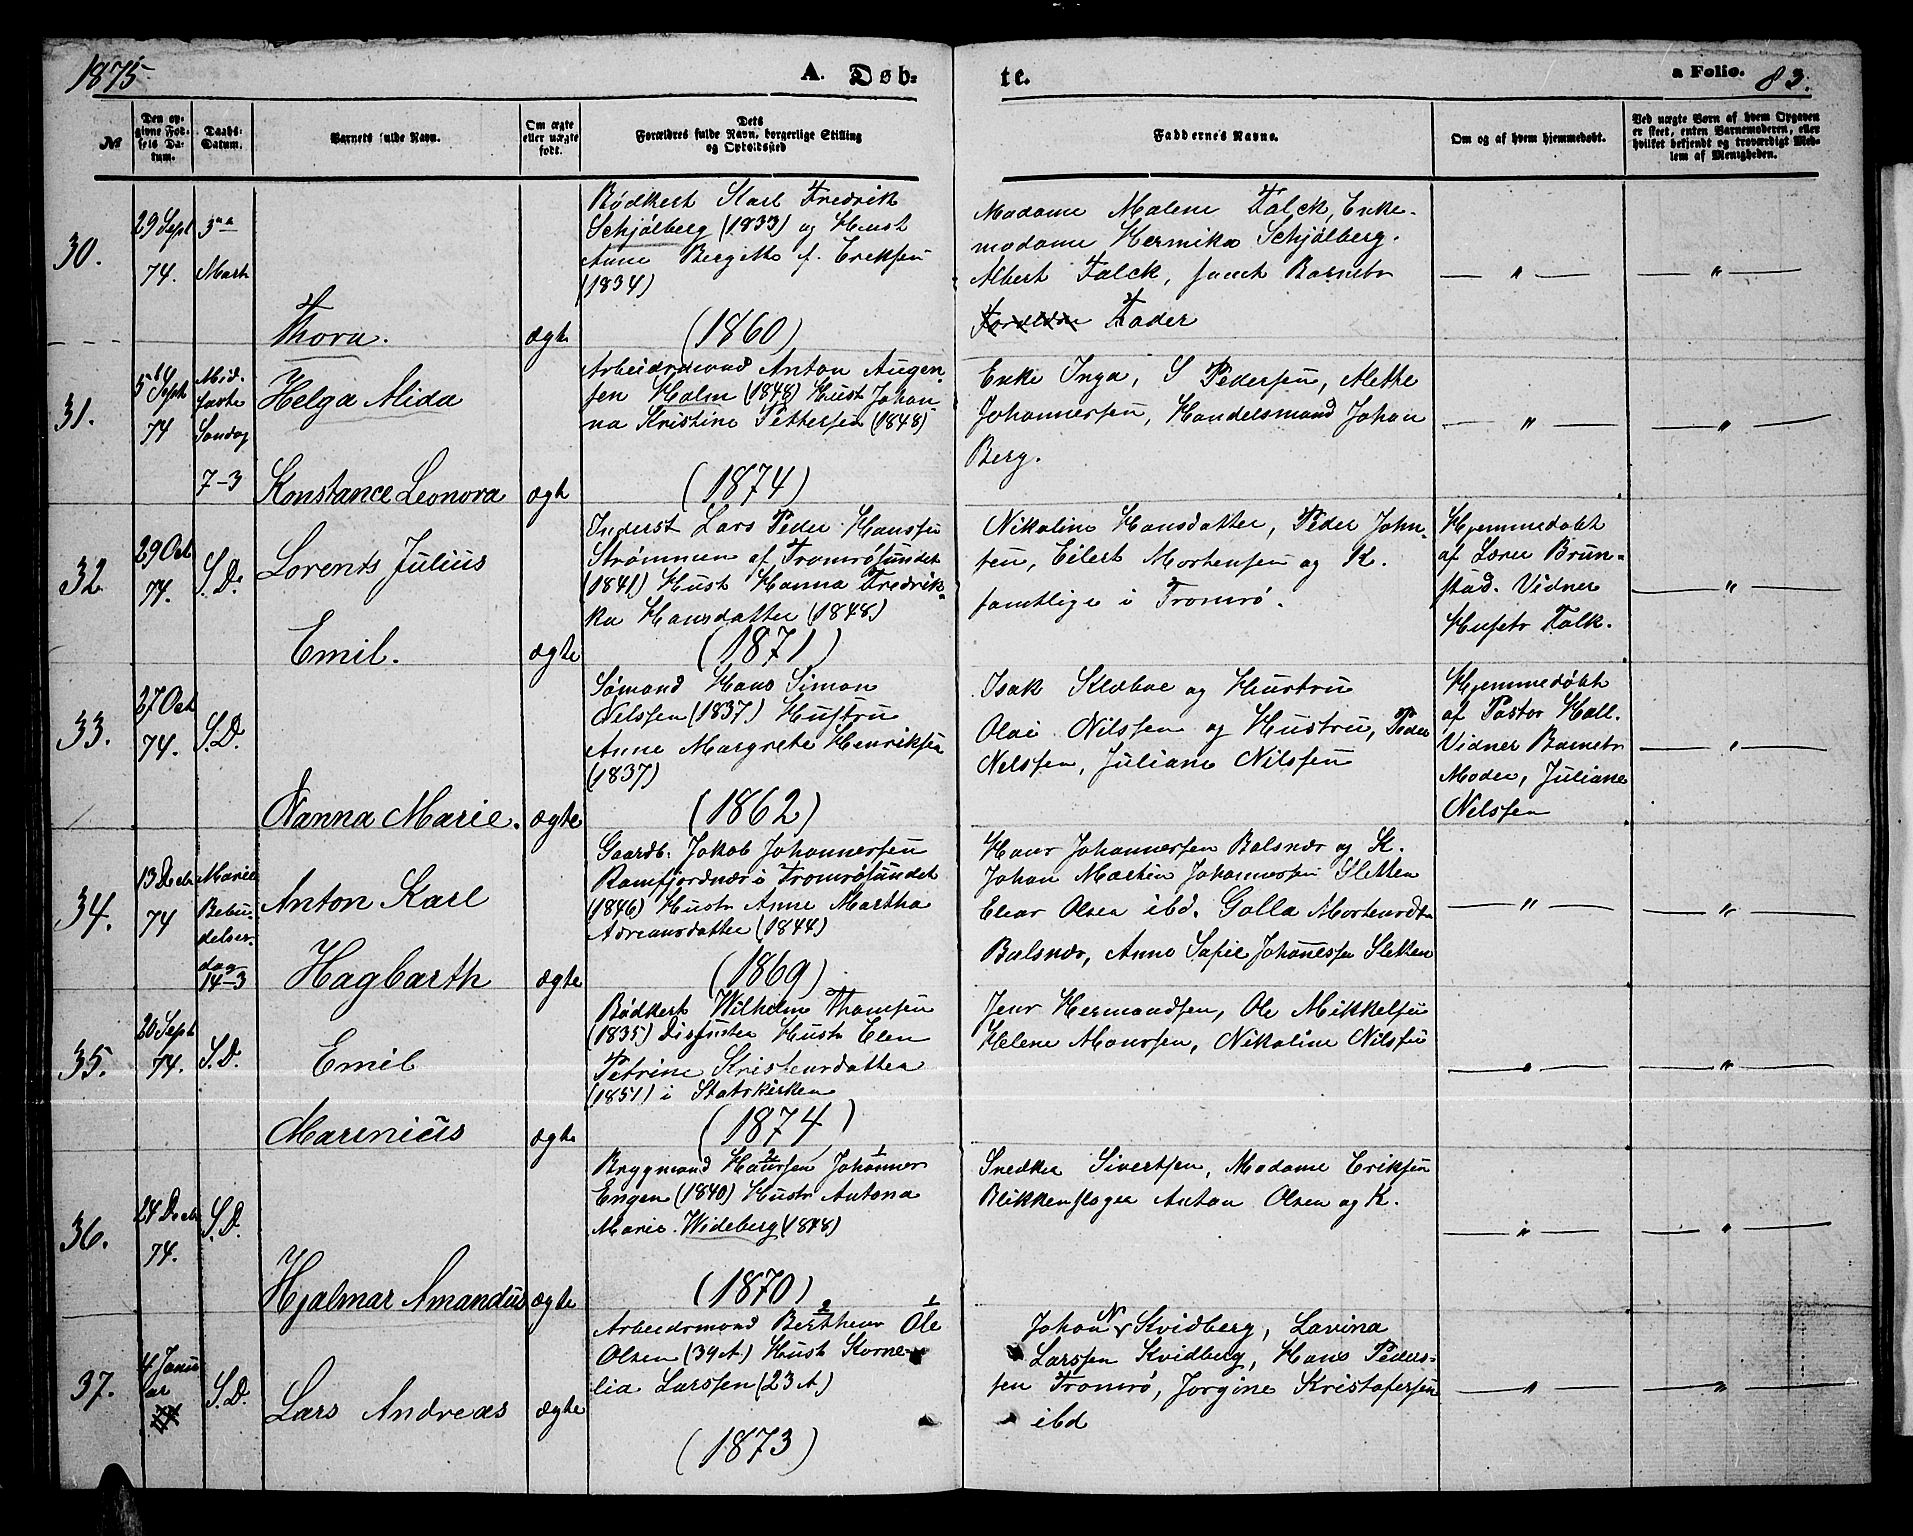 1875. A. Døb- te. a Folio. 83.
№
Den opgivne Fødsels Datum.
Daabs-Datum.
Barnets fulde Navn.
Om ægte eller uægte født.
Dets Forældres fulde Navn, borgerlige Stilling og Opholdssted
Faddernes Navne.
Om og af hvem hjemmedøbt.
Ved uægte Børn af hvem Opgaven er skeet, enten Barnemoderen, eller hvilket bekjendt og troværdigt Medlem af Menigheden.
30.
29 Sept
74.
3die
Marts
Thora.
ægte
Bødkers Karl Fredrik
Schjølberg (1833) og Hust
Anne Bergitte f. Eriksen
(1834)
(1860)
Madame Malene Falck, Enke-
madame Hermika Schjølberg.
Albert Falck, samt Barnets
Forældre Fader
— " — — " —
31.
5 Sept
74
Mid-
faste
Søndag
7-3
Helga Alida
Konstance Leonora
ægte
Arbeidsmand Anton Augen-
sen Holm (1848) Hust Johan-
na Kristine Pettersen (1848)
(1874)
Enke Inga, S Pedersen, Alethe
Johannessen, Handelsmand Johan
Berg.
— " — — " —
32
29 Oct
74.
S.D.
Lorents Julius
Emil.
ægte
Inderst Lars Peder Hanssen
Strømmen af Tromsøsundet
(1841) Hust Hanna Fredrik-
ka Hansdatter (1848)
(1871)
Nikoline Hansdatter, Peder John-
sen, Eilert Mortensen og K.
samtlige i Tromsø.
Hjemmedøbt
af Lærer Brun-
stad. Vidner
Husets Folk.
— " —
33.
27 Oct
74.
S.D.
Nanna Marie.
ægte
Sømand Hans Simon
Nilssen (1837) Hustru
Anne Margrete Henriksen
(1837)
(1862)
Isak Klæboe og Hustru
Olai Nilssen og Hustru, Peder
Nilssen, Juliane Nilssen
Hjemmedøbt
af Pastor Hall.
Vidner Barnets
Moder, Juliane
Nilssen
— " —
34.
13 Decbr
74
Mariæ
Bebu-
delses-
dag
14-3
Anton Karl
Hagbarth
ægte
Gaardb. Jakob Johannessen
Ramfjordnæs i Tromsøsundet
(1846) Hustr Anne Martha
Adreansdatter (1844)
(1869)
Hans Johannessen Balsnæs og K.
Johan Martin Johannessen Sletten
Elear Olsen ibd. Golla Mortensdtr
Balsnæs, Anne Sofie Johanessen Sletten
— " — — " —
35.
20 Sept
74.
S.D.
Emil
Marinius
ægte
Bødkers Wilhelm Thomsen
(1835) Dissenter Hust Elen
Petrine Kristensdatter
(1851) i Statskirken
(1874)
Jens Hermandsen, Ole Mikkelsen
Helene Monssen, Nikoline Nilsen
— " — — " —
36.
24 Decbr
74.
S.D.
Hjalmar Amandus
ægte
2 1
Brygmand Hanssen Johannes
Engen (1840) Hustr Antona
Marie Wideberg (1848)
(1870)
Snedker Sivertsen, Madame Eriksen
Blikkenslager Anton Olsen og K.
— " — — " —
37.
4 Janu
ar
S.D.
Lars Andreas
ægte
2 1
Arbeidsmand Bertheus Ole
Olsen (39 A.) Hust Korne-
lia Larssen (23 A.)
(1873)
Johan N Kvidberg, Lavina
Larssen Kvidberg, Hans Peders-
sen Tromsø, Jorgine Kristofersen
ibd
— " — — " —